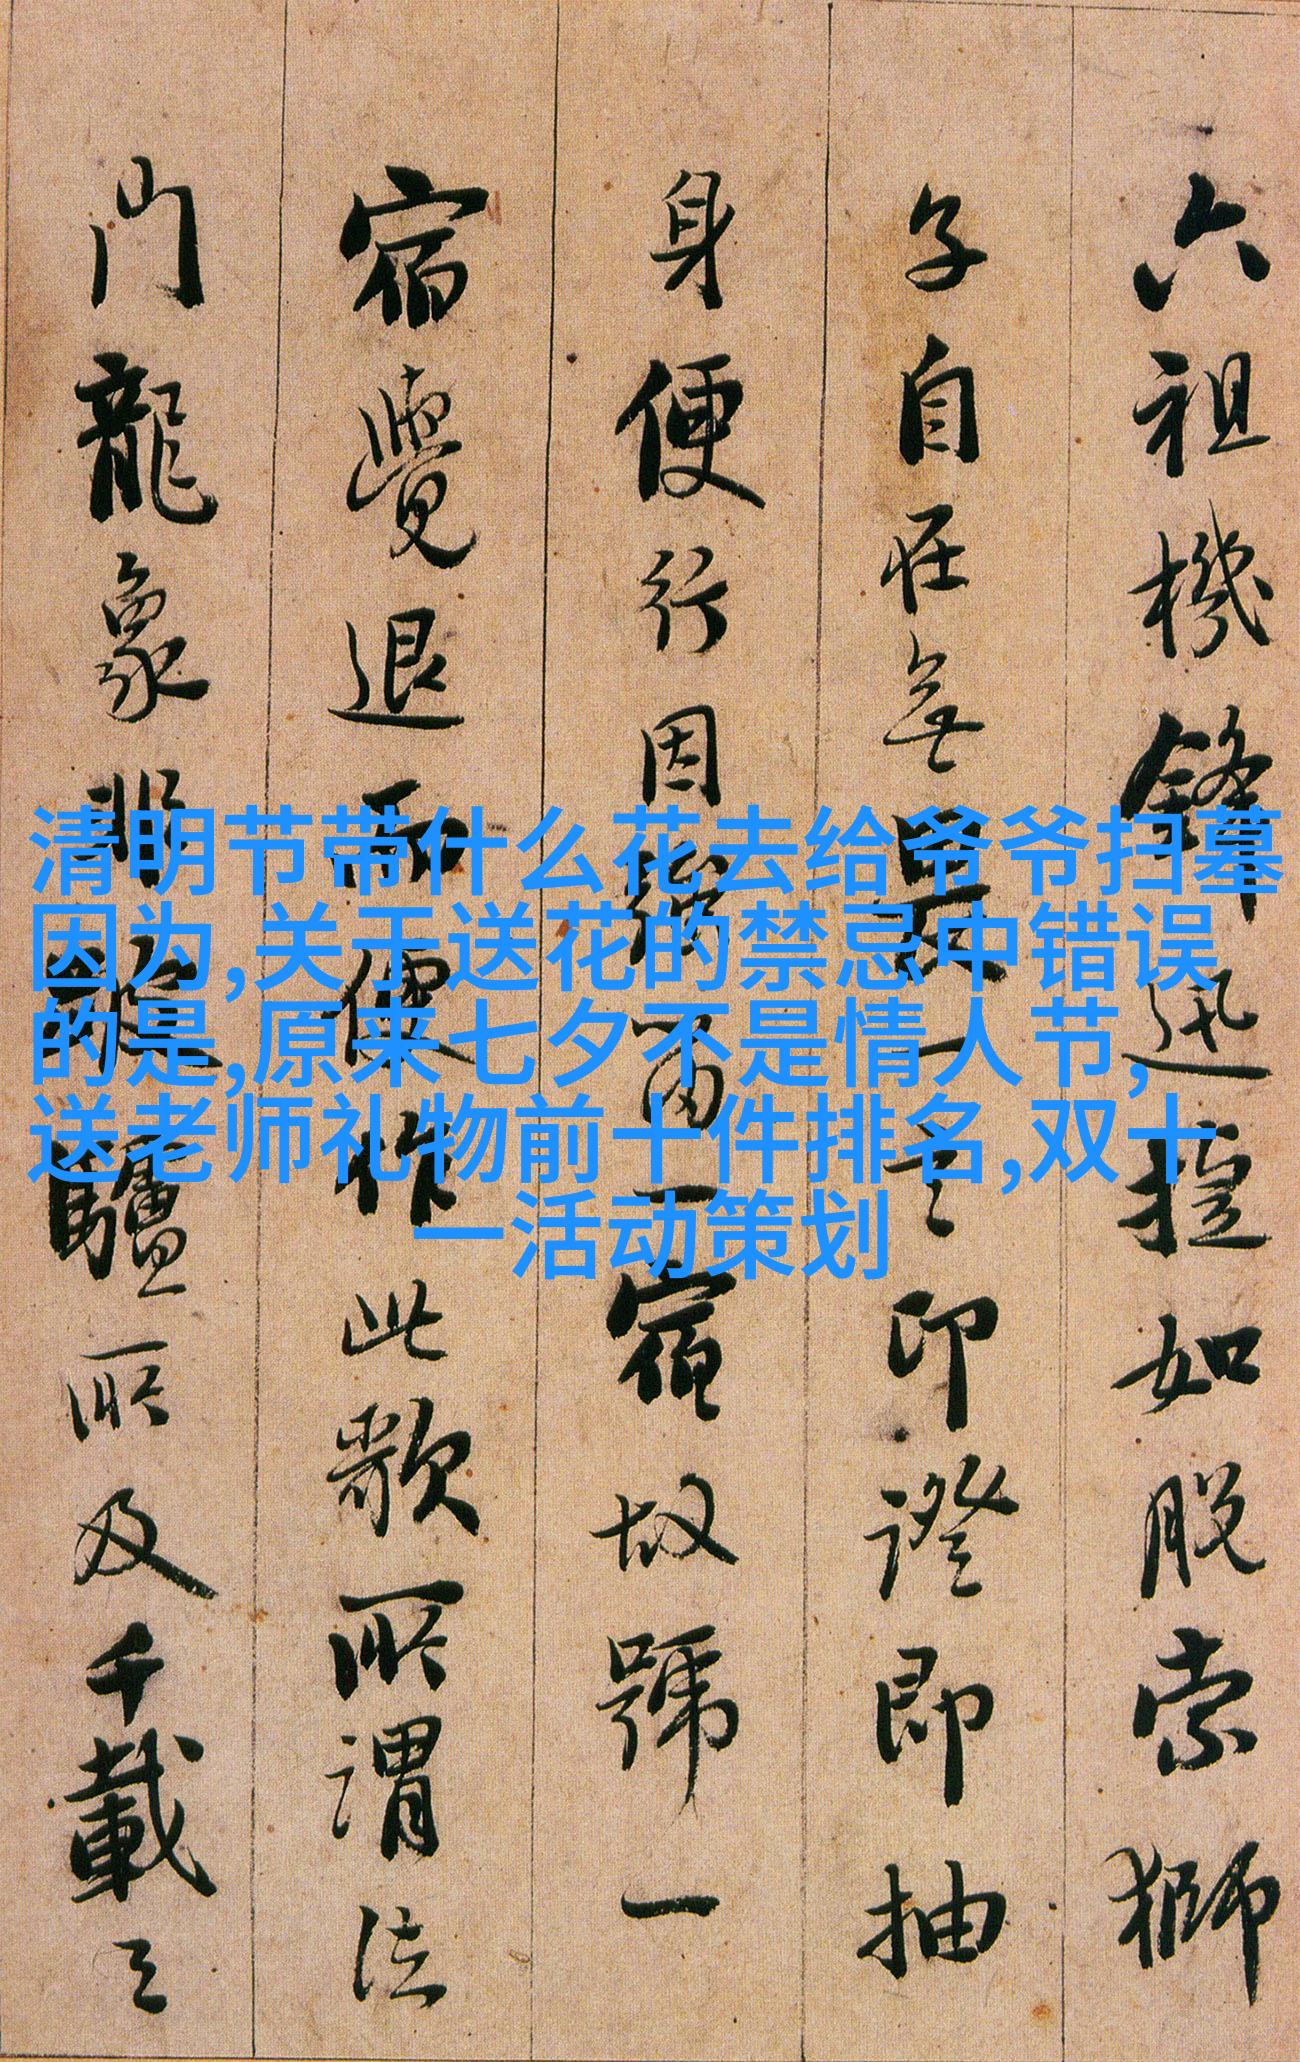 六祖機鋒迅捷如脫索獅
子自在無畏一言印證即抽
身便行因強留一宿故號一
宿覺退而便作此歌所謂法
門龍象非驢所及千載之
清明节带什么花去给爷爷扫墓
因为,关于送花的禁忌中错误
的是,原来七夕不是情人节,
送老师礼物前十件排名,双十
一活动策划